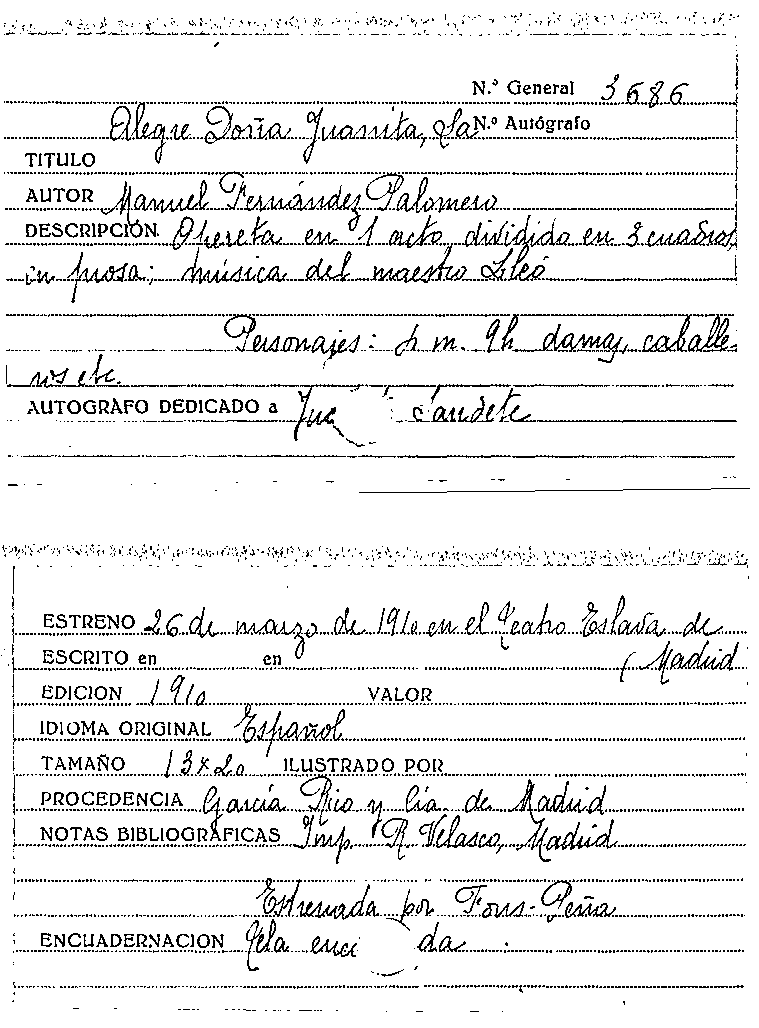 N.º General 3686
Alegre Doña Juanita, La N.º Autógrafo
TITULO
AUTOR Manuel Fernández Palomero
DESCRIPCIÓN Opereta en 1 acto, dividido en 3 cuadros,
en prosa; música del maestro Lleó
Personajes: m. 9 h. damas, caballe-
ros etc.
AUTOGRAFO DEDICADO a
ESTRENO 26 de marzo de 1910 en el Teatro Eslava de
ESCRITO en en (Madrid
EDICION 1910 VALOR
IDIOMA ORIGINAL Español
TAMAÑO 13 x 20 ILUSTRADO POR
PROCEDENCIA García Rico y Cía. de Madrid
NOTAS BIBLIOGRAFICAS Imp. R. Velasco, Madrid
Estrenada por Fons-Peña
ENCUADERNACION Tela